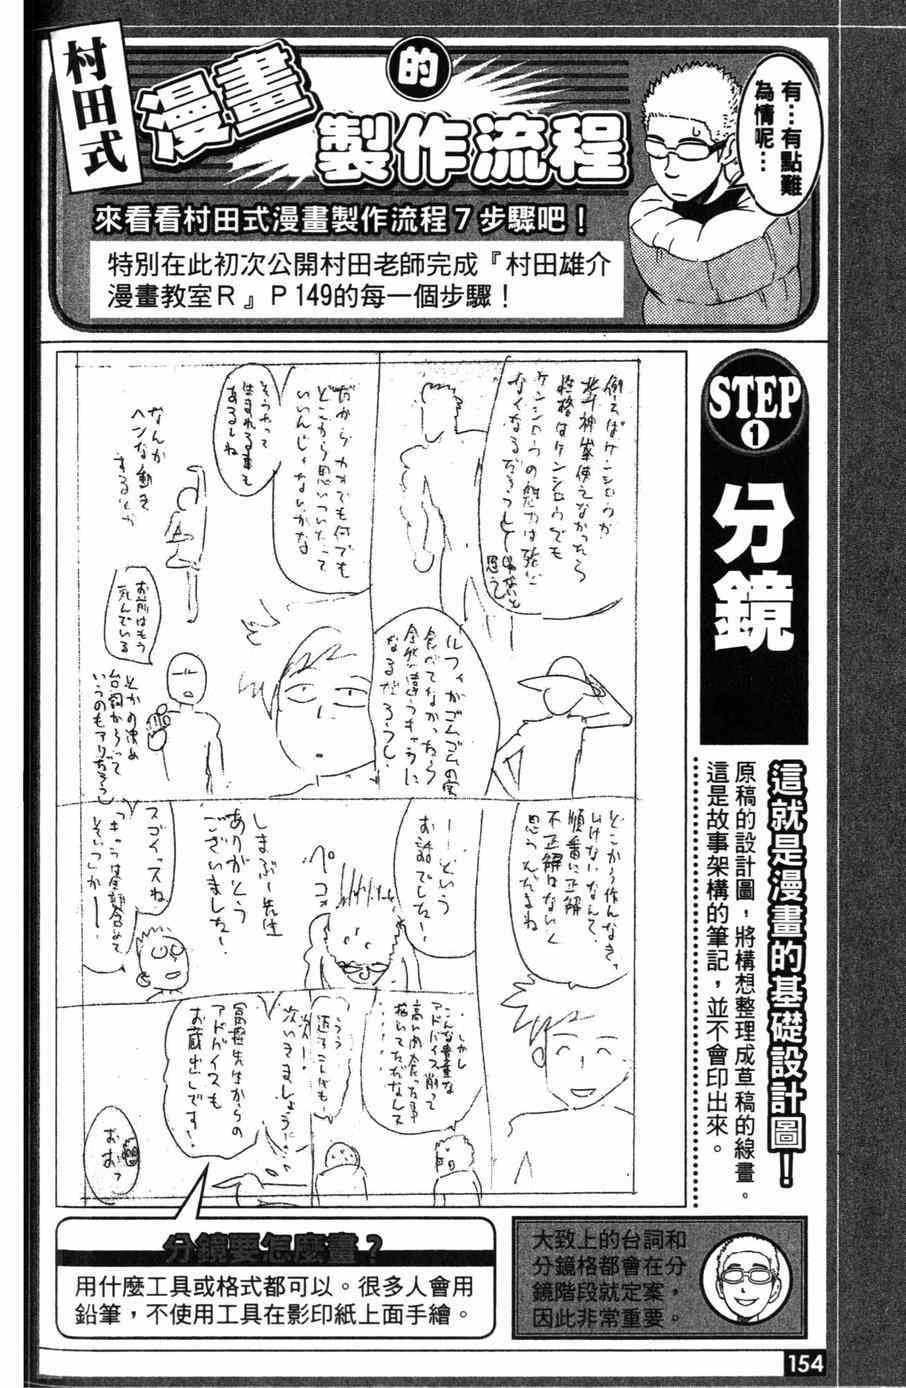 村田式
漫畫
的
製作流程
有…有點難
為情呢…
來看看村田式漫畫製作流程7步驟吧！
特別在此初次公開村田老師完成『村田雄介
漫畫教室R』P149的每一個步驟！
STEP
1
分鏡
這就是漫畫的基礎設計圖！
原稿的設計圖，將構想整理成草稿的線畫。
這是故事架構的筆記，並不會印出來。
例えばケンシロウが
北斗神拳使えなかったら
性格はケンシロウでも
ケンシロウの魅力は
なくなるだろうし
思う
だから
どこから思いついたって
いいんじゃないかな
そうやって
生まれる事も
あるしね
なんか
ヘンな動き
するとか
お前はもう
死んでいる
とかの決め
台詞からって
いうのもアリだろうし
ルフィがゴムゴムの実
食べてなかったら
全然違うキャラに
なるだろうし
どこから作んなきゃ
いけないなんて
順番に正解
不正解はないと
思うんだよね
ーーという
お話でした！
ペコ
しまぶー先生
ありがとう
ございました！
スゴイっスね
しかし
こんな貴重な
アドバイス
次いきましょう
冨樫先生からの
アドバイスも
お蔵出しです！
おおっ
分鏡要怎麼畫？
用什麼工具或格式都可以。很多人會用
鉛筆，不使用工具在影印紙上面手繪。
大致上的台詞和
分鏡格都會在分
鏡階段就定案，
因此非常重要。
154